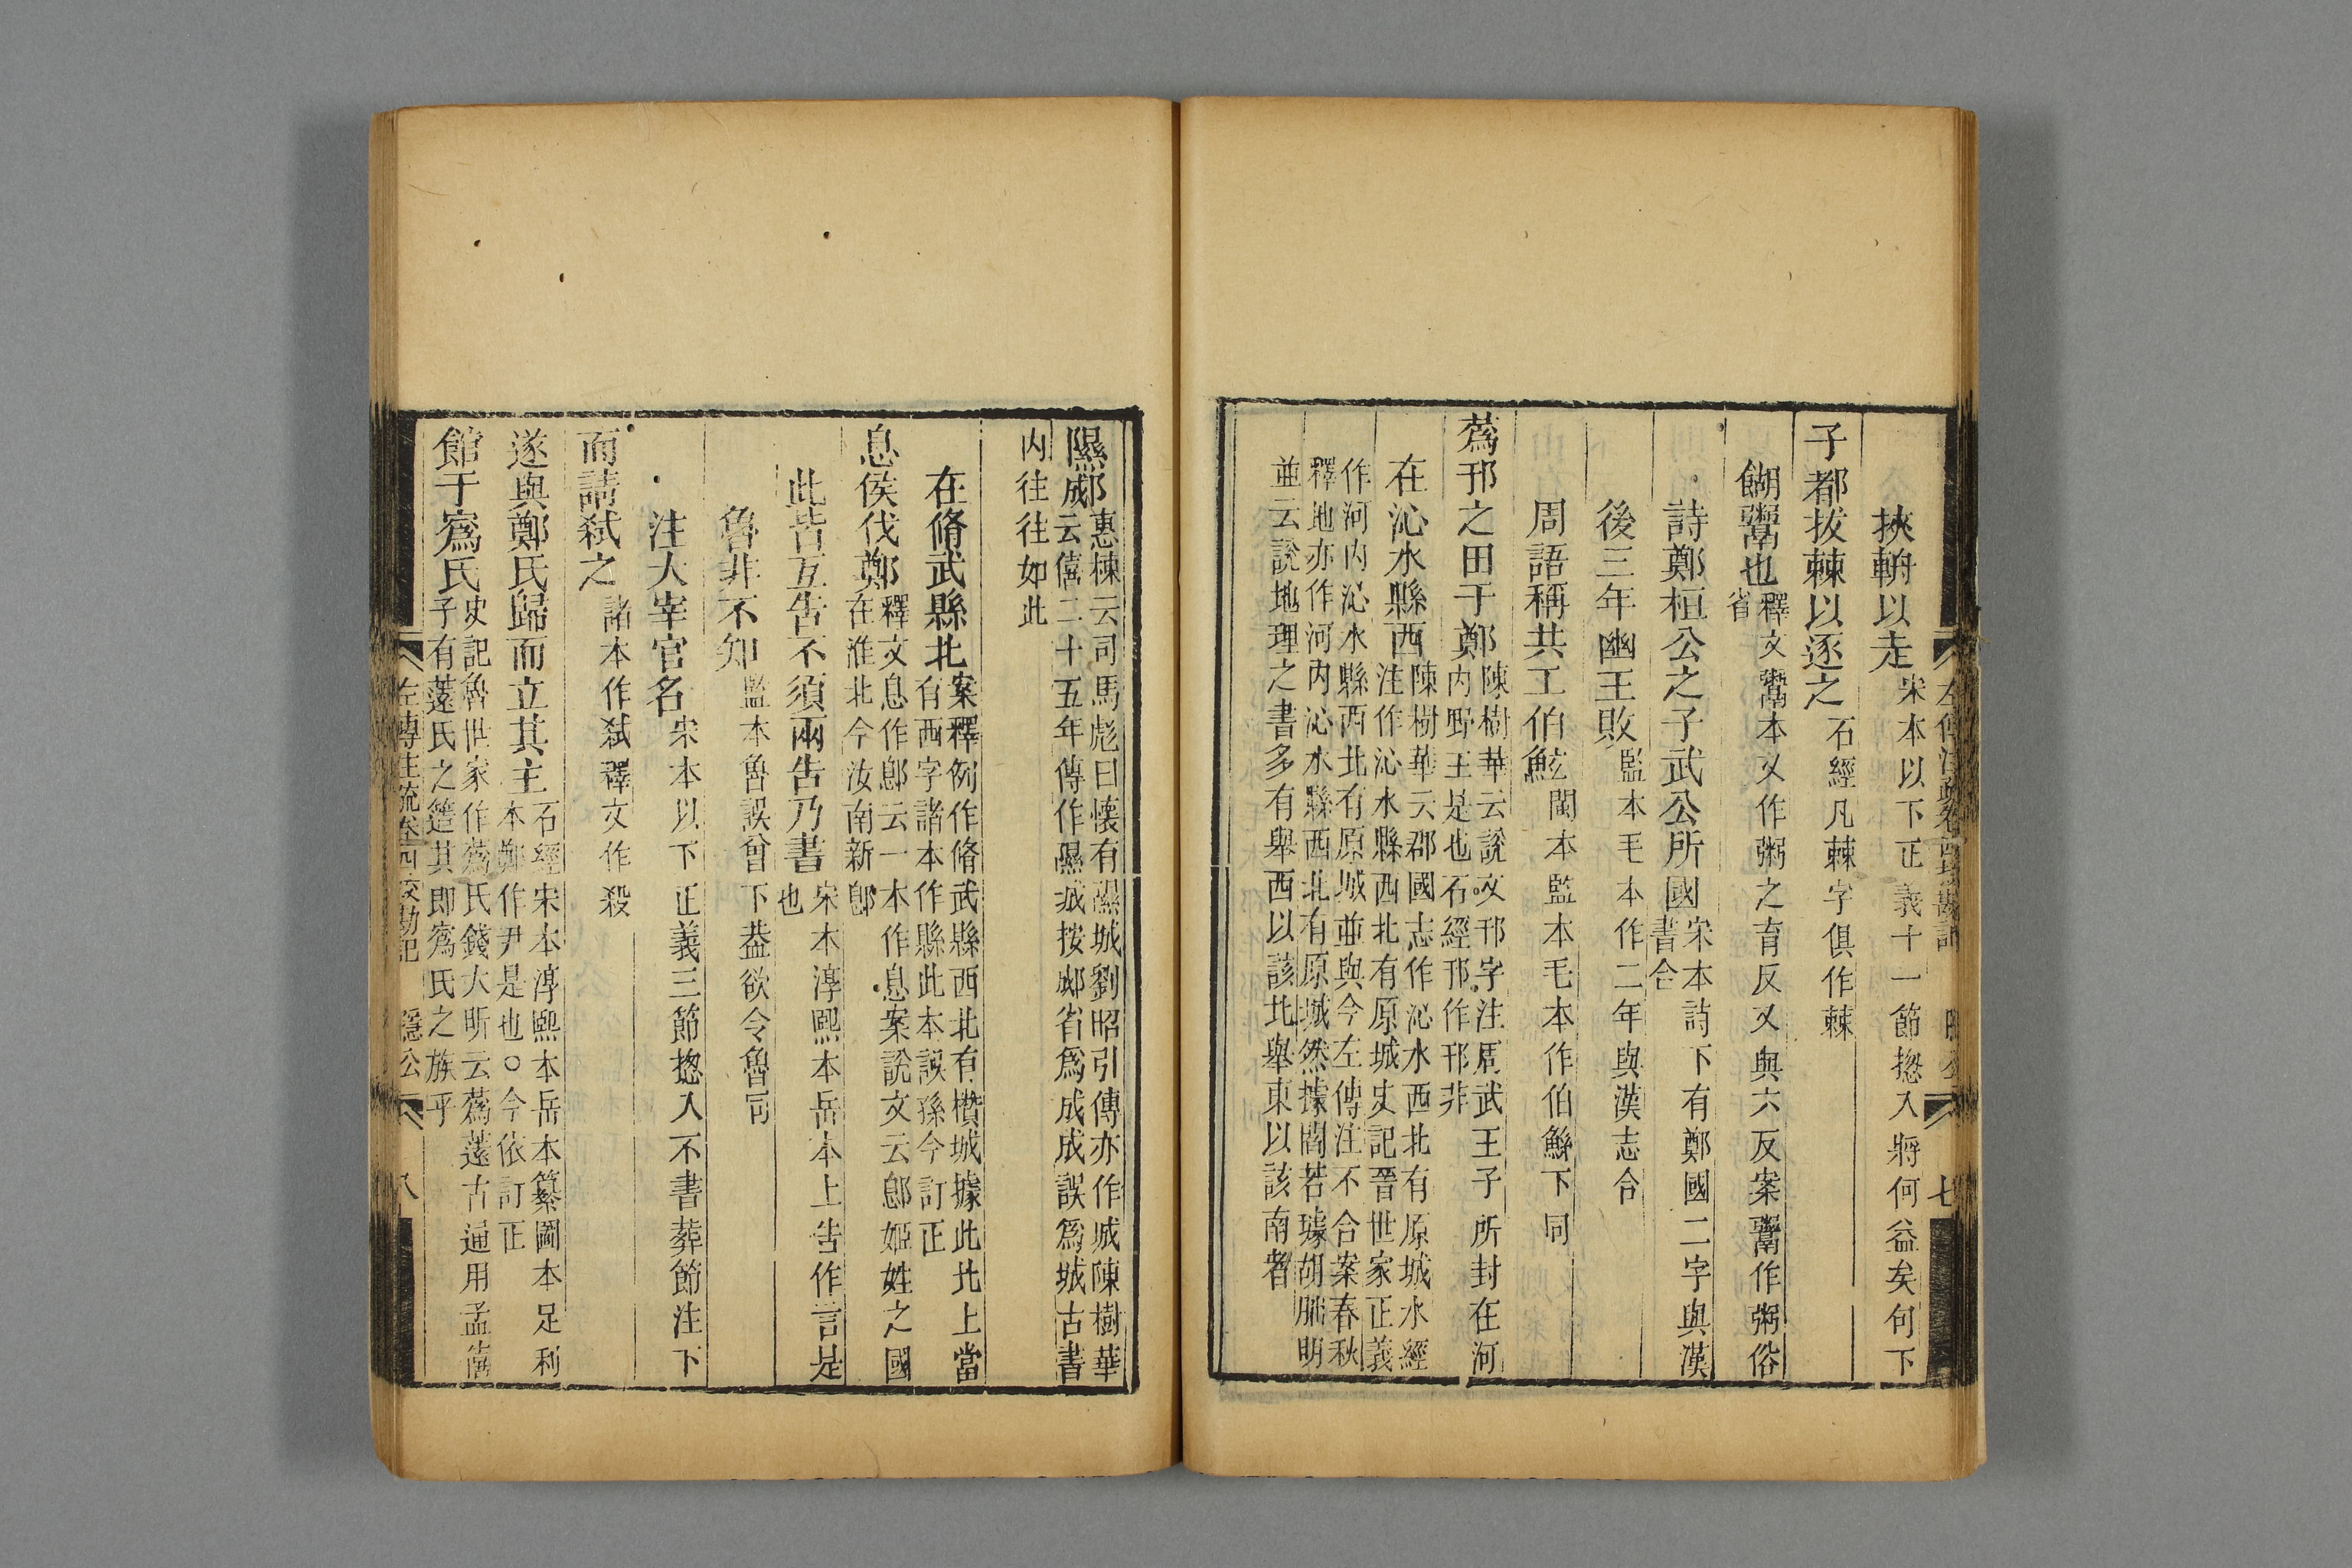 挾輈以走宋本以下正義十一節揔入將何益矣句下
子都拔棘以逐之石經凡棘字俱作棘
餬鬻也釋文鬻本又作粥之育反又與六反案鬻作粥俗
省
詩鄭桓公之子武公所國宋本詩下有鄭國二字與漢
書合
後三年幽王敗監本毛本作二年與漢志合
周語稱共工伯鮌閩本監本毛本作伯鯀下同
蔿邘之田于鄭陳樹華云說文邘字注周武王子所封在河
內野王是也石經邘作邗非
在沁水縣西陳樹華云郡國志作沁水西北有原城水經
注作沁水縣西北有原城史記晉世家正義
作河內沁水縣西北有原城並與今左傳注不合案春秋
釋地亦作河內沁水縣西北有原城然據閻若璩胡朏明
並云說地理之書多有舉西以該北舉東以該南者
左傳注疏卷四校勘記 隱公 七
隰郕惠棟云司馬彪曰懷有隰城劉昭引傳亦作城陳樹華
云僖二十五年傳作隰城按郕省爲成成誤爲城古書
內往往如此
在脩武縣北案釋例作脩武縣西北有欑城據此北上當
有西字諸本作縣此本誤孫今訂正
息侯伐鄭釋文息作鄎云一本作息案說文云鄎姬姓之國
在淮北今汝南新鄎
此皆互告不須兩告乃書宋本淳熙本岳本上告作言是
也
魯非不知監本魯誤曾下葢欲令魯同
注大宰官名宋本以下正義三節揔入不書葬節注下
而請弒之諸本作弒釋文作殺
遂與鄭氏歸而立其主石經宋本淳熙本岳本纂圖本足利
本鄭作尹是也○今依訂正
館于寪氏史記魯世家作蔿氏錢大昕云蔿薳古通用孟僖
子有薳氏之簉其卽寪氏之族乎
左傳注疏卷四校勘記 隱公 八